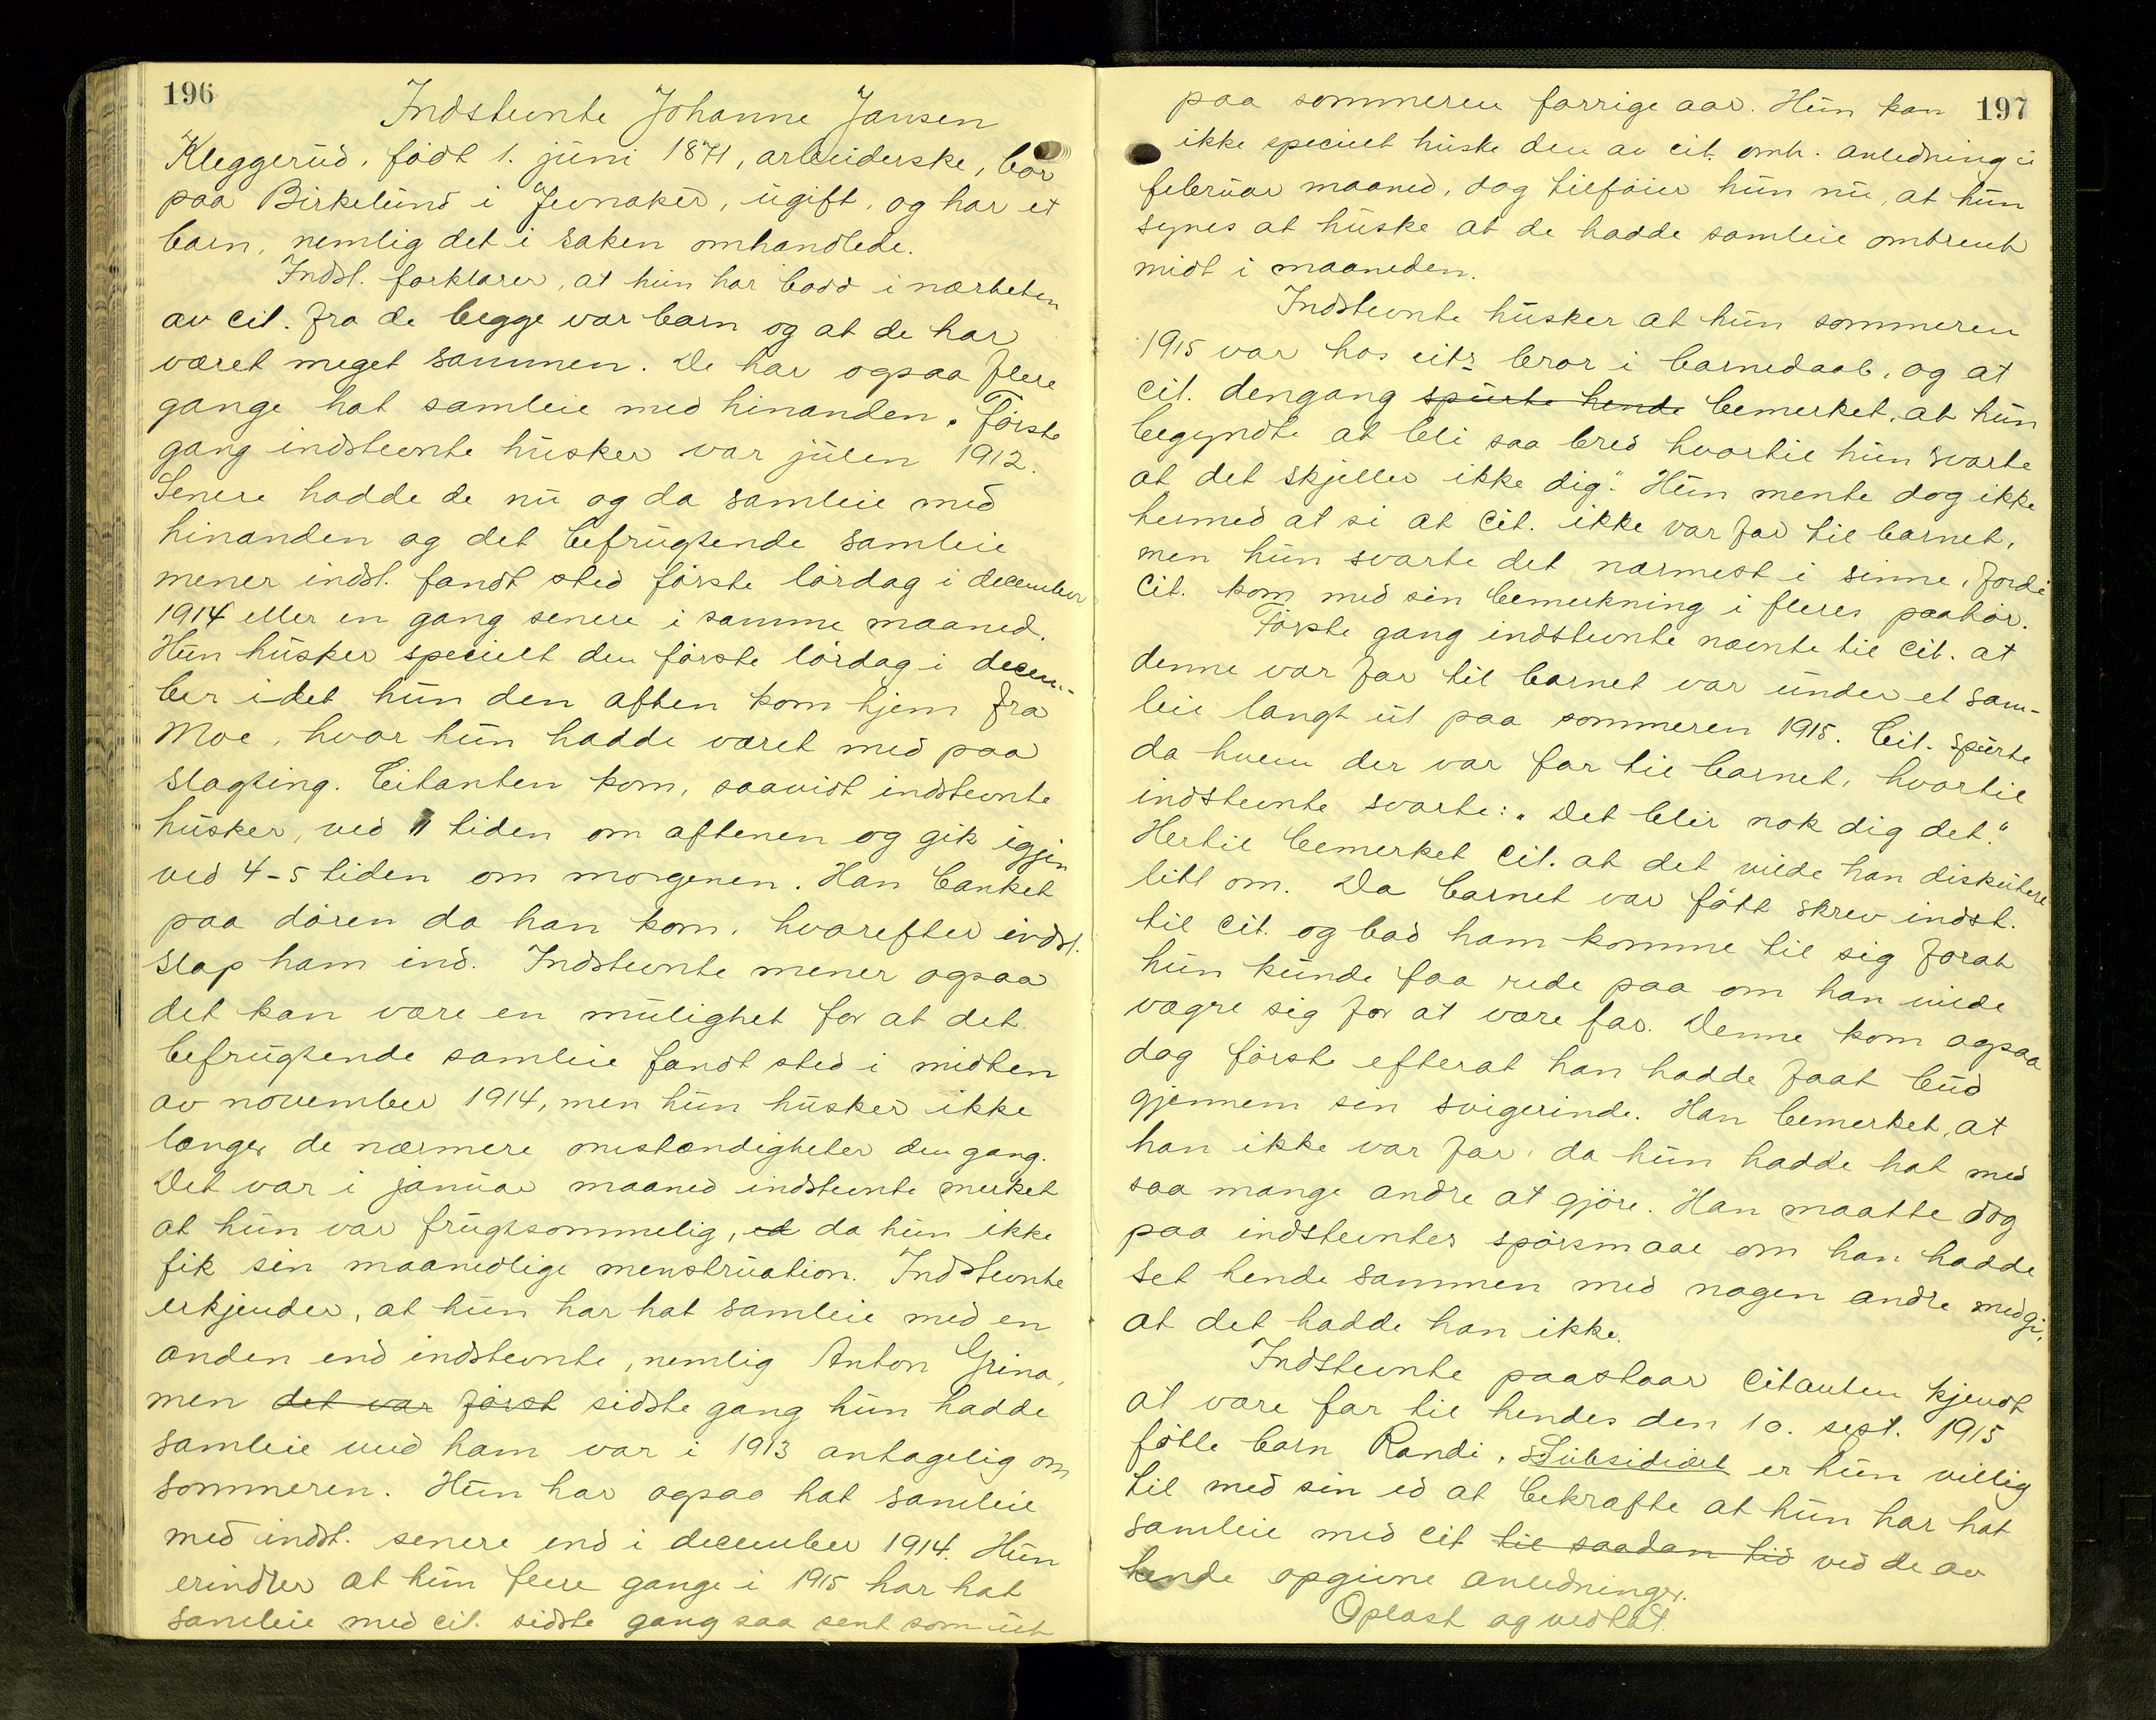 196
Indstevnte Johanne Jansen
Kleggerud, født 1. juni 1871, arbeiderske, bor
paa Birkelund i Jevnaker, ugift, og har et
barn, nemlig det i saken omhandlede.
Indst. forklarer, at hun har bodd i nærheten
av cit. fra de begge var barn og at de har
været meget sammen. De har ogsaa flere
gange hat samleie med hinanden. Første
gang indstevnte husker var julen 1912.
Senere hadde de nu og da samleie med
hinanden og det befrugtende samleie
mener indst. fandt sted første lørdag i december
1914 eller en gang senere i samme maaned.
Hun husker specielt den første lørdag i decem-
ber idet hun den aften kom hjem fra
Moe, hvor hun hadde været med paa
slagting. Citanten kom, saavidt indstevnte
husker, ved 11 tiden om aftenen og gik igjen
ved 4-5 tiden om morgenen. Han banket
paa døren da han kom, hvorefter indst.
slap ham ind. Indstevnte mener ogsaa
det kan være en mulighet for at det
befrugtende samleie fandt sted i midten
av november 1914, men hun husker ikke
længer de nærmere omstændigheter den gang.
Det var i januar maaned indstevnte merket
at hun var frugtsommelig, ed da hun ikke
fik sin maanedlige menstruation. Indstevnte
erkjender, at hun har hat samleie med en
anden end indstevnte, nemlig Anton Grina,
men det var først sidste gang hun hadde
samleie med ham var i 1913 antagelig om
sommeren. Hun har ogsaa hat samleie
med indst. senere end i december 1914. Hun
erindrer at hun flere gange i 1915 har hat
samleie med cit. sidste gang saa sent som ut
197
paa sommeren forrige aar. Hun kan
ikke specielt huske den av cit. omh. anledning i
februar maaned, dog tilføier hun nu, at hun
synes at huske at de hadde samleie omtrent
midt i maaneden.
Indstevnte husker at hun sommeren
1915 var hos cits bror i barnedaab, og at
cit. dengang spurte hende bemerket, at hun
begyndte at bli saa bred hvortil hun svarte
at det skjeller ikke dig." Hun mente dog ikke
hermed at si at cit. ikke var far til barnet,
men hun svarte det nærmest i sinne, fordi
cit. kom med sin bemerkning i fleres paahør.
Første gang indstevnte nævnte til cit. at
denne var far til barnet var under et sam-
leie langt ut paa sommeren 1915. Cit. spurte
da hvem der var far til barnet, hvortil
indstevnte svarte: „Det blir nok dig det."
Hertil bemerket cit. at det vilde han diskutere
litt om. Da barnet var født skrev indst.
til cit. og bad ham komme til sig forat
hun kunde faa rede paa om han vilde
vægre sig for at være far. Denne kom ogsaa
dog første efterat han hadde faat bud
gjennem sin svigerinde. Han bemerket, at
han ikke var far, da hun hadde hat med
saa mange andre at gjøre. Han maatte dog
paa indstevntes spørsmaal om han hadde
set hende sammen med nogen andre medgi,
at det hadde han ikke.
Indstevnte paastaar citanten kjendt
at være far til hendes den 10. sept. 1915
fødte barn Randi. Subsidiært er hun villig
til med sin ed at bekræfte at hun har hat
samleie med cit til saadan tid ved de av
hende opgivne anledninger.
Oplæst og vedtat.